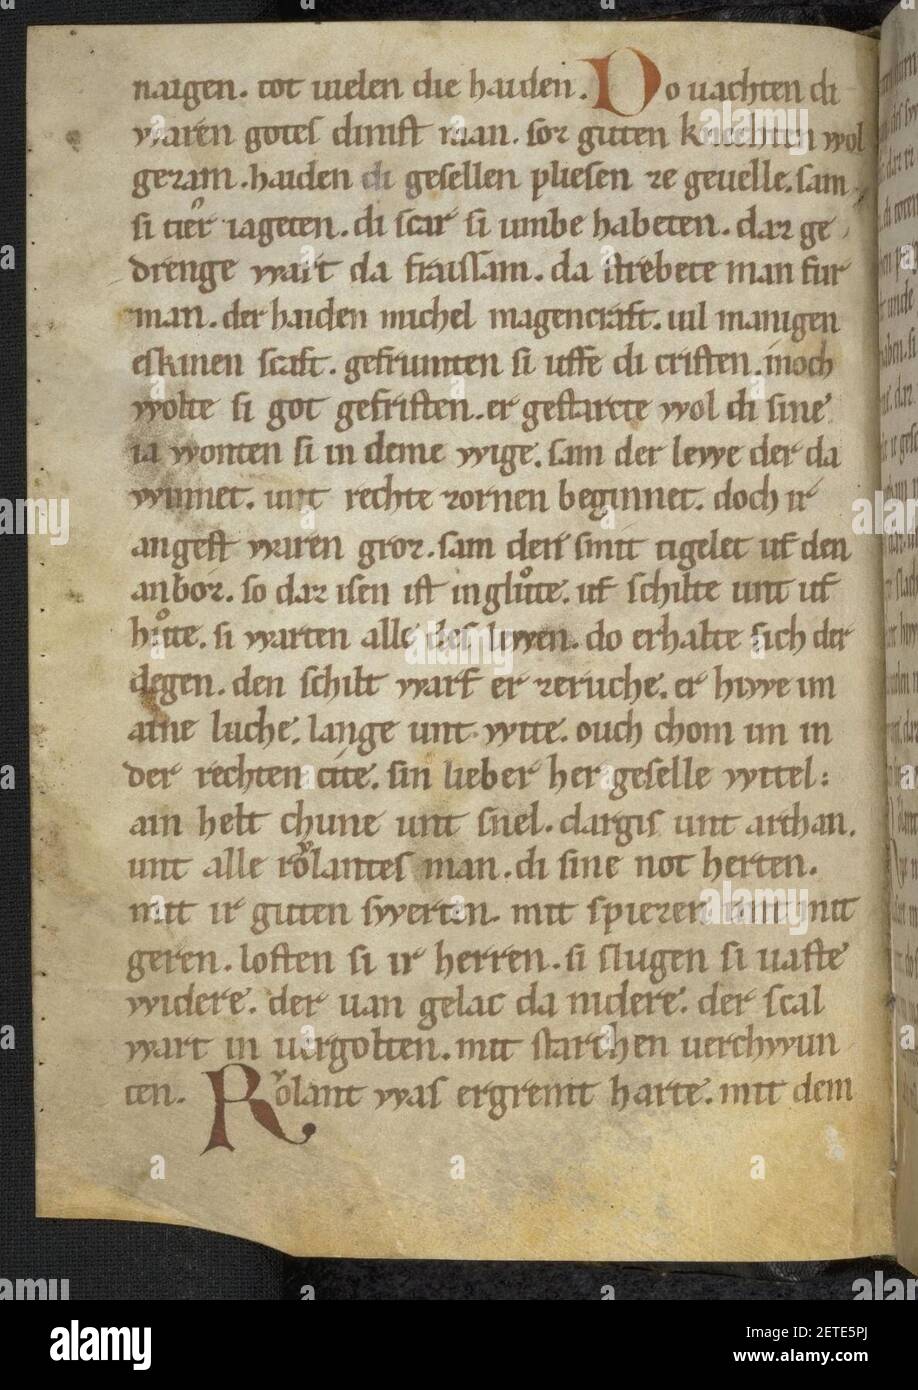 naigen. tot uielen die haiden. Do uachten di
waren gotes dinist man. sor guten knechten wol
gezam. haiden di gesellen pliesen ze geuelle. sam
si tieͦr iageten. di scar si umbe habeten. daz ge
drenge wart da fraissam. da strebete man fur
man. der haiden michel magencraft. uil manigen
eskinen scaft. gefrumten si uffe di cristen. inoch
wolte si got gefristen. er gestarcte wol di sine
ia wonten si in deme wige. sam der lewe der da
winnet. unt rechte zornen beginnet. doch ir
angest waren groz. sam der smit tigelet uf den
anboz. so daz isen ist in gluͦte. uf schilte unt uf
huͦte. si warten alle des liwen. do erhalte sich der
degen. den schilt warf er zeruche. er hiwe im
aine luche. lange unt wite. ouch chom im in
der rechten cite. sin lieber her geselle wittel:
ain helt chune unt snel. dargis unt arthan.
unt alle roͮlantes man. di sine not herten.
mit ir guten swerten. mit spiezen unt mit
geren. losten si ir herren. si slugen si uaste
widere. der uan gelac da nidere. der scal
wart in uergolten. mit starchen uerchwun
ten. Roͮlant was ergremt harte. mit dem
alamy
Image ID: 2ETE5PJ
www.alamy.com